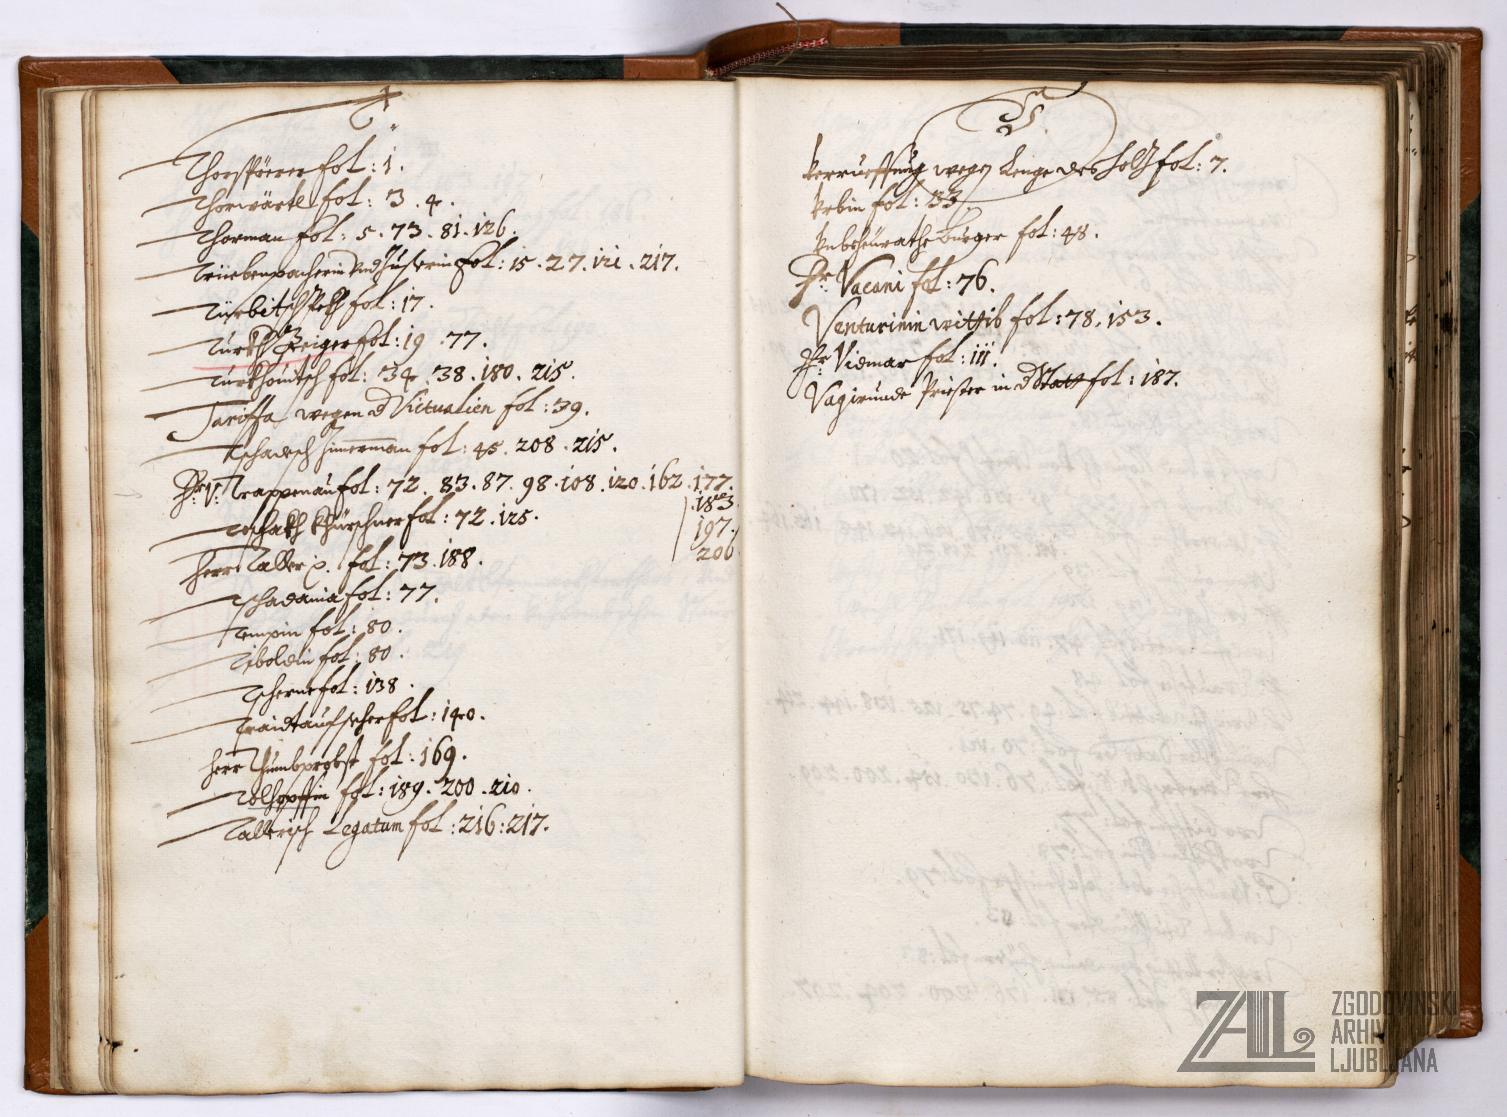 T
Thorspörer fol: 1.
Thorwärtel fol: 3. 4.
Thorman fol: 5. 73. 81. 126.
fol: 15. 27. 121. 217.
fol: 17.
Türkh Geiger fol: 19. 77.
Turkhouitsch fol: 34. 38. 180. 215.
Tariffa wegen d Victualien fol: 39.
Tschadesch Zimerman fol: 45. 208. 215.
Hr: V: Trappenau fol: 72. 83. 87. 98. 108. 120. 162. 177.
183
197.
206
Khürschner fol: 72. 125.
Herr Taller p. fol: 73. 188.
Tschadania fol: 77.
Tempin fol: 80.
Tiboldin fol: 80.
Tscherne fol: 138.
Traidtaufseher fol: 140.
Herr Thumbprobst fol: 169.
fol: 189. 200. 210.
Tallerisch Legatum fol: 216: 217.
V.
Verrueffung wegen Lenge des Holz fol: 7.
Vrbin fol: 33.
Vnbeheurathe Burger fol: 48.
Hr: Vacani fol: 76.
Venturinin wittib fol: 78. 153.
Hr: Vidmar fol: 111.
Vagirunde Priester in d Statt fol: 187.
ZAL
ZGODOVINSKI
ARHIV
LJUBLJANA